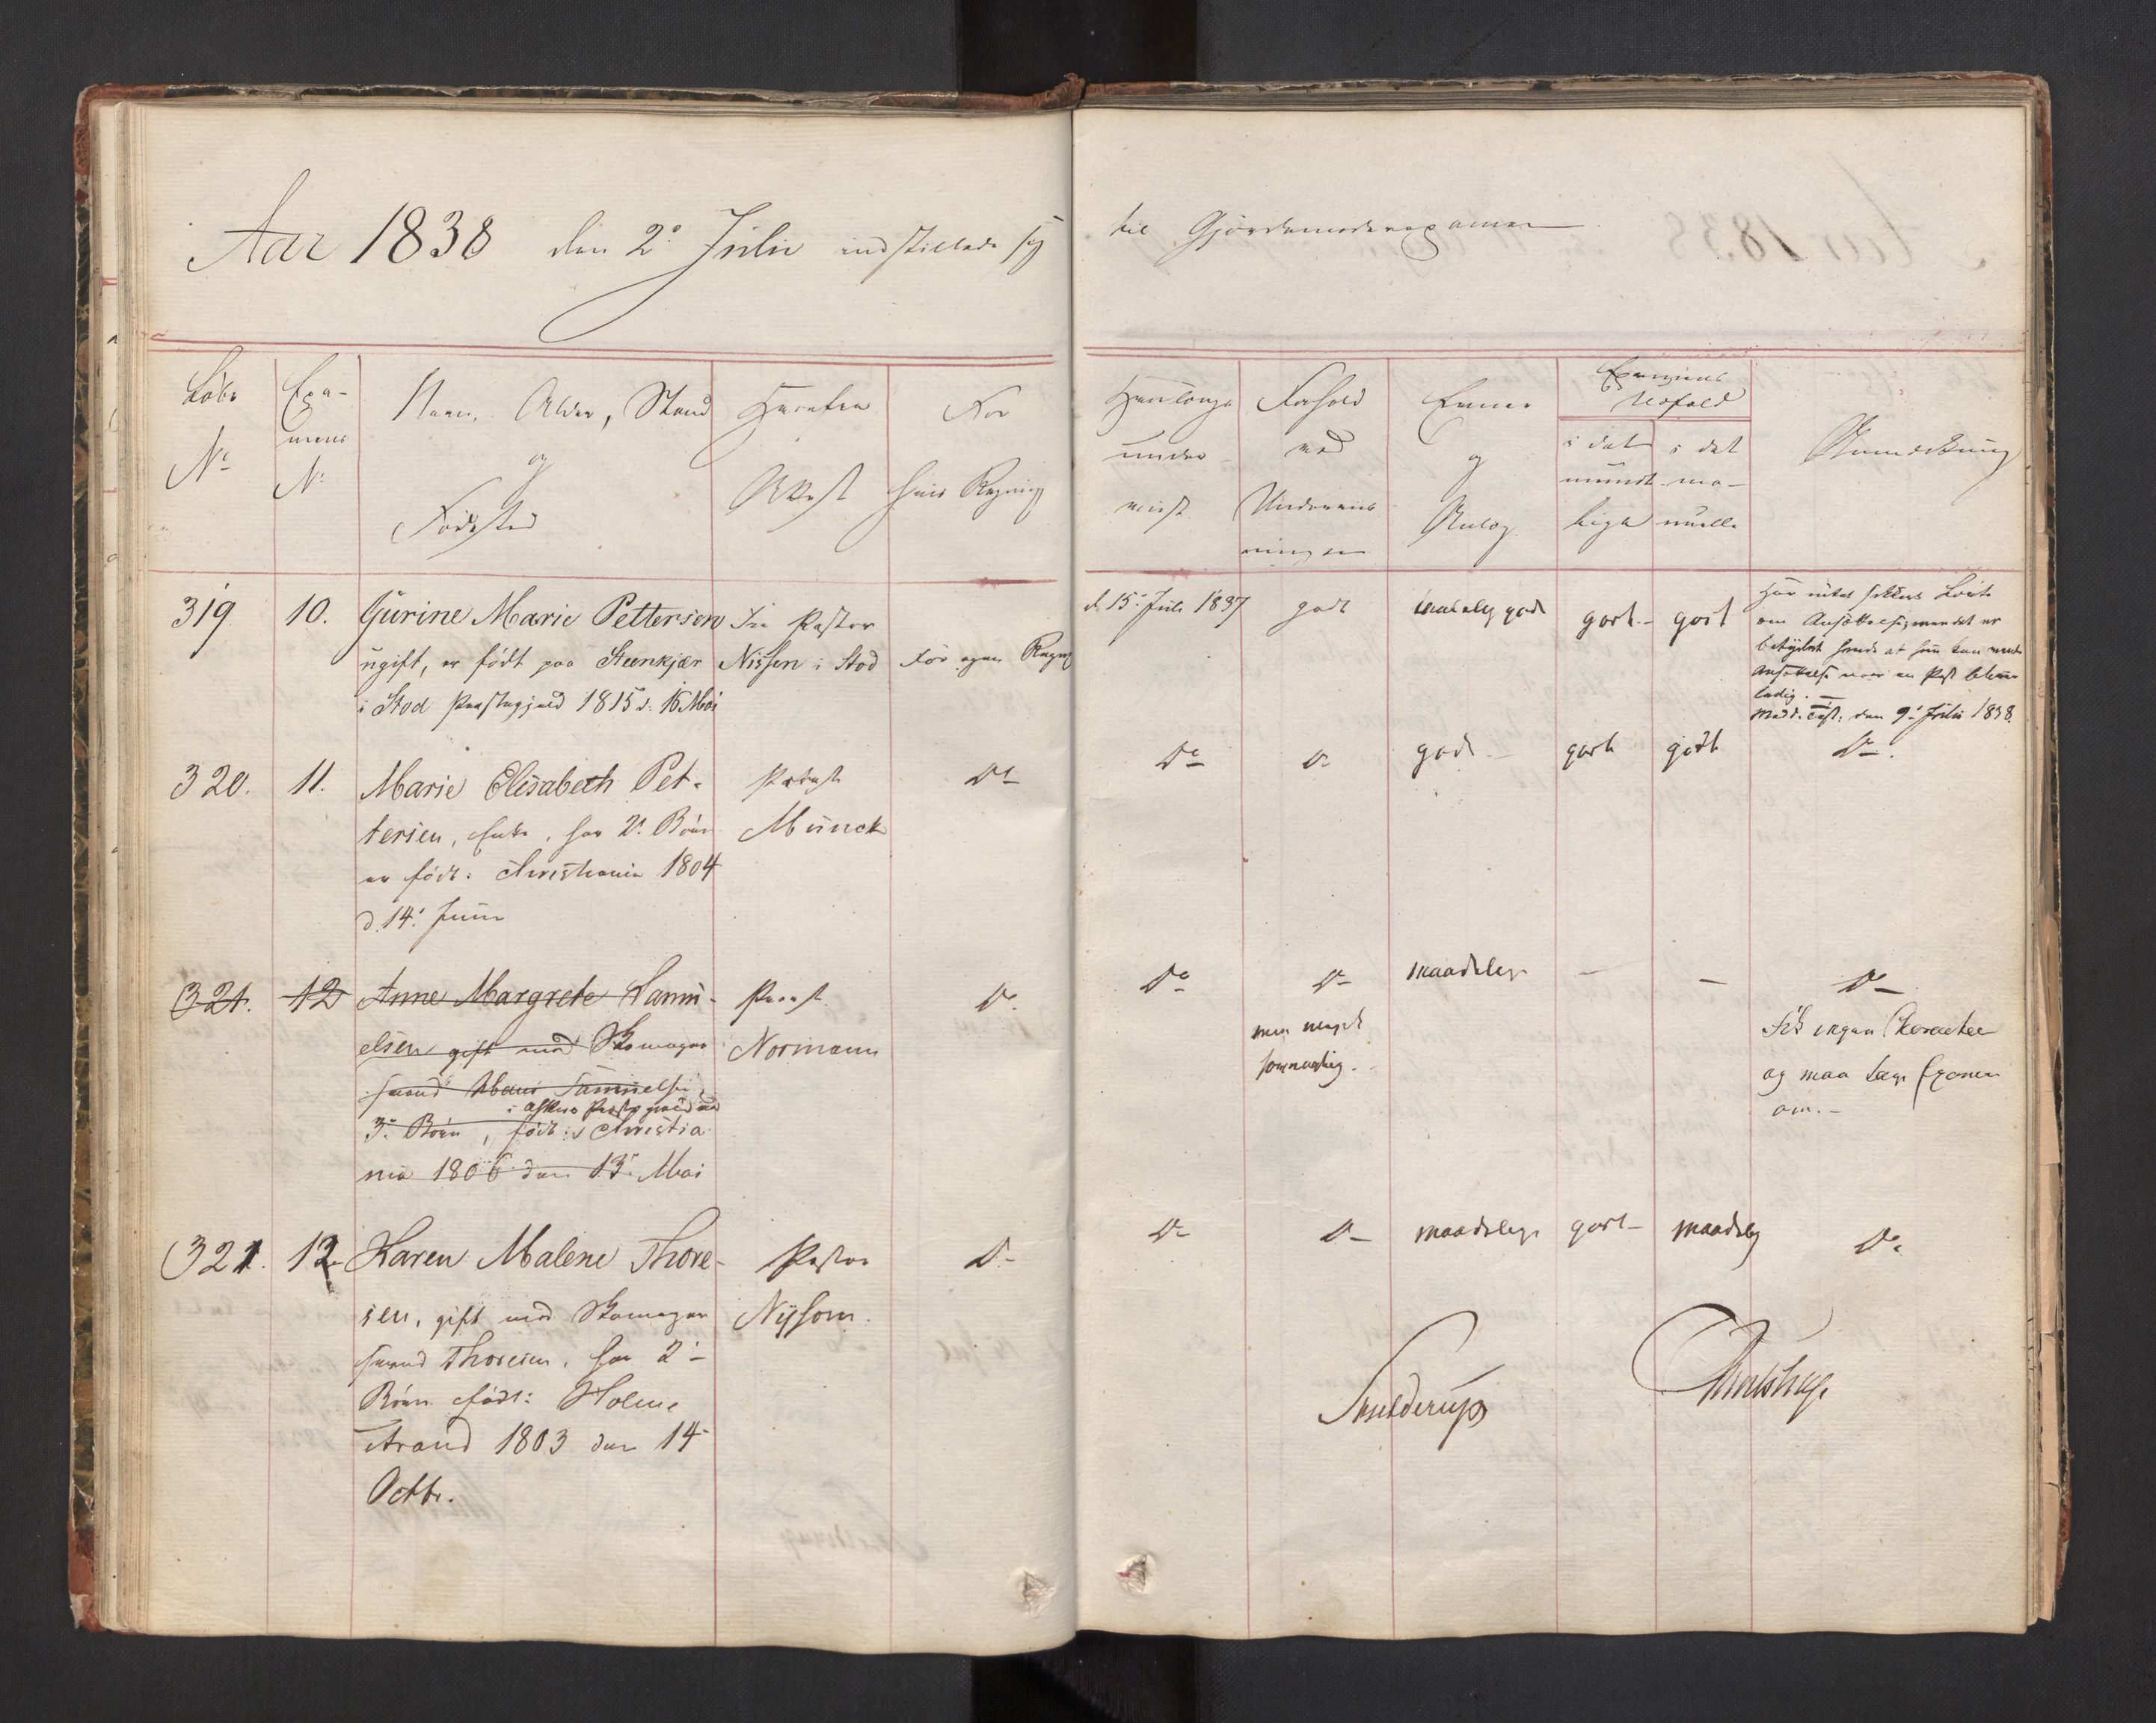 Aar 1838 den 2º Julii indstillede sig
til Gjordemoderexamen
Løbe
Nº
Exa-
mens
Nº
Navn, Alder, Stand
og
Fødested
Hvorfra
Attest
For
hvis Regning
Hvorlænge
under-
viist
Forhold
ved
Underviis-
ningen
Evner
og
Anlæg
Examens
Udfald
i det
mundt-
lige
i det
ma-
nuelle
Anmerkning
319
10.
Gurine Marie Petterson
ugift, er født paa Steenkjær
i Stod Præstegjæld 1815 d. 16 Mai
Fra Pastor
Nissen i Stod
For egen Regning
d. 15 Juli 1837
godt
maadelig godt
godt.-
godt
om Ansættelse
betydet hende at hun kan vente
Ansættelse naar en Post bliver
ledig. -
den 9. Julii 1838.
320.
11.
Marie Elisabeth Pet-
tersen, Enke, har 2 Børn
er født i Christiania 1804
d. 14 Junii
Provst
Munch
Do
Do
Do
godt
godt
godt
Do.
321.
12
Anne Margrete Samu-
elsen gift med Skomager
svend Samuelsen,
i Asker Præstegjeld
3 Børn, født i Christia-
nia 1806 den 13 Mai
Provst
Normann
Do
Do
Do
men meget
maadelig
-
-
Do
Fik ingen Character
og maa tage Examen
om. -
321.
12
Karen Malene Thore-
sen, gift med Skomager
svend Thoresen, har 2
Børn født i Holme
strand 1803 den 14
Octbr.
Pastor
Nissom.
Do
Do
Do
maadelig
godt
maadelig
Do.
Skjelderup